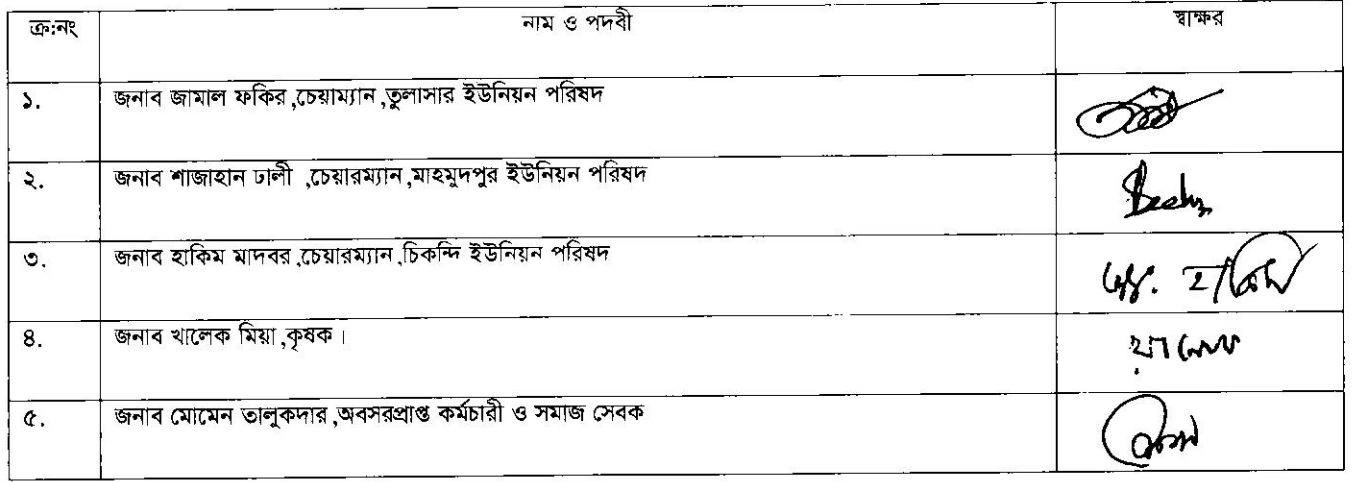 ক্র:নং নাম ও পদবী স্বাক্ষর
১. জনাব জামাল ফকির ,চেয়াম্যান ,তুলাসার ইউনিয়ন পরিষদ
২. জনাব শাজাহান ঢালী ,চেয়ারম্যান ,মাহমুদপুর ইউনিয়ন পরিষদ
৩. জনাব হাকিম মাদবর ,চেয়ারম্যান ,চিকন্দি ইউনিয়ন পরিষদ
৪. জনাব খালেক মিয়া ,কৃষক ।
৫. জনাব মোমেন তালুকদার ,অবসরপ্রাপ্ত কর্মচারী ও সমাজ সেবক